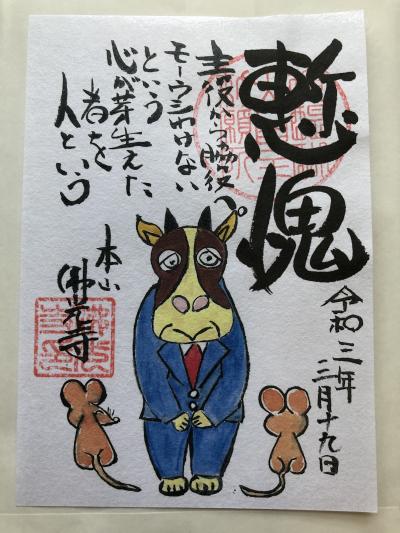 慙愧
主役から脇役へ。
モーウシわけない
という
心が芽生えた
者を
人という
本山
佛光寺
令和三年
三月十九日